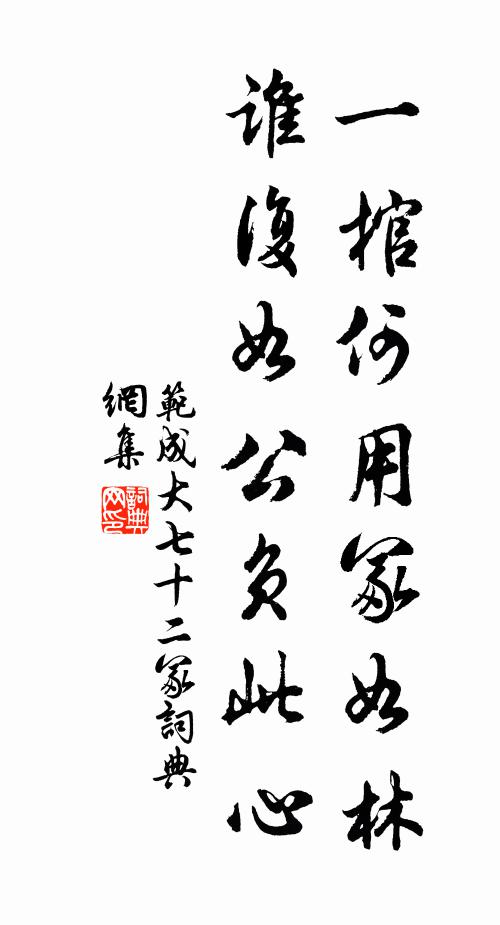 一棺何用冢如林
誰復如公負此心
範成大七十二冢詞典
網集
詞典
网印